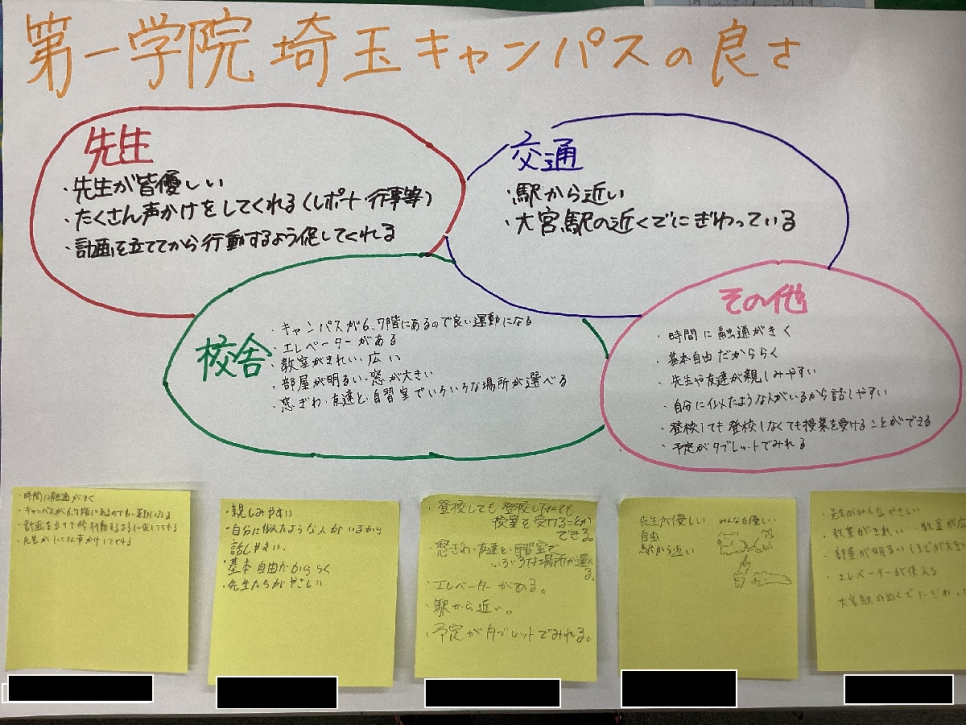 第一学院 埼玉キャンパスの良さ
先生
・先生が皆優しい
・たくさん声かけをしてくれる(レポート・行事等)
・計画を立ててから行動するよう促してくれる
交通
・駅から近い
・大宮駅の近くでにぎわっている
校舎
・キャンパスが6、7階にあるので良い運動になる
・エレベーターがある
・教室がきれい・広い
・部屋が明るい・窓が大きい
・窓ぎわ・友達と・自習室でいろいろな場所が選べる
その他
・時間に融通がきく
・基本自由だかららく
・先生や友達が親しみやすい
・自分に似たような人がいるから話しやすい
・登校しても登校しなくても授業を受けることができる
・予定がタブレットでみれる
・時間に融通がきく
・キャンパスが6、7階にあるので良い運動になる
・計画を立てて
・先生が
・親しみやすい
・自分に似たような人がいるから
話しやすい、
・基本自由だかららく
・先生たちがやさしい
・登校しても登校しなくても
授業を受けることが
できる。
・窓ぎわ・友達と・自習室で
いろいろな場所が選べ
る。
・エレベーターがある。
・駅から近い。
・予定がタブレットでみれる。
先生が優しい みんなも優しい
自由
駅から近い
・先生がみんなやさしい
・教室がきれい 教室が広
・部屋が明るい
・エレベーターが使える
・大宮駅の近くで